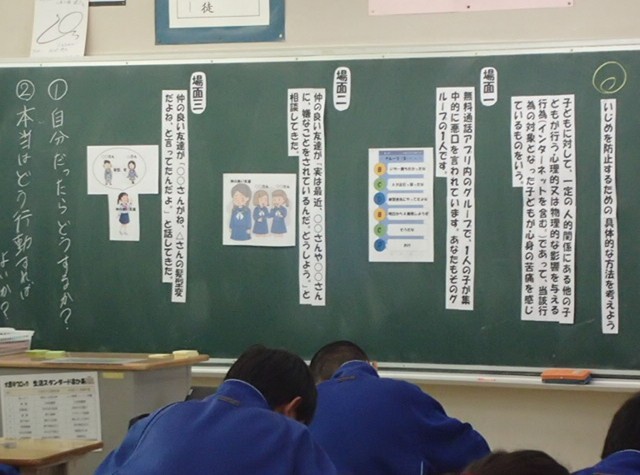 徒
いじめを防止するための具体的な方法を考えよう
子どもに対して、一定の人的関係にある他の子
どもが行う心理的又は物理的な影響を与える
行為(インターネットを含む。)であって、当該行
為の対象となった子どもが心身の苦痛を感じ
ているものをいう。
場面一
無料通話アプリ内のグループで、1人の子が集
中的に悪口を言われています。あなたもそのグ
ループの1人です。
場面二
仲の良い友達が「実は最近、○○さんや○○さん
に、嫌なことをされているんだ。どうしよう。」と
相談してきた。
場面三
仲の良い友達が「○○さんがね、△さんの髪型変
だよね、と言ってたんだよ。」と話してきた。
①自分だったらどうするか?
②本当はどう行動すれば
よいか?